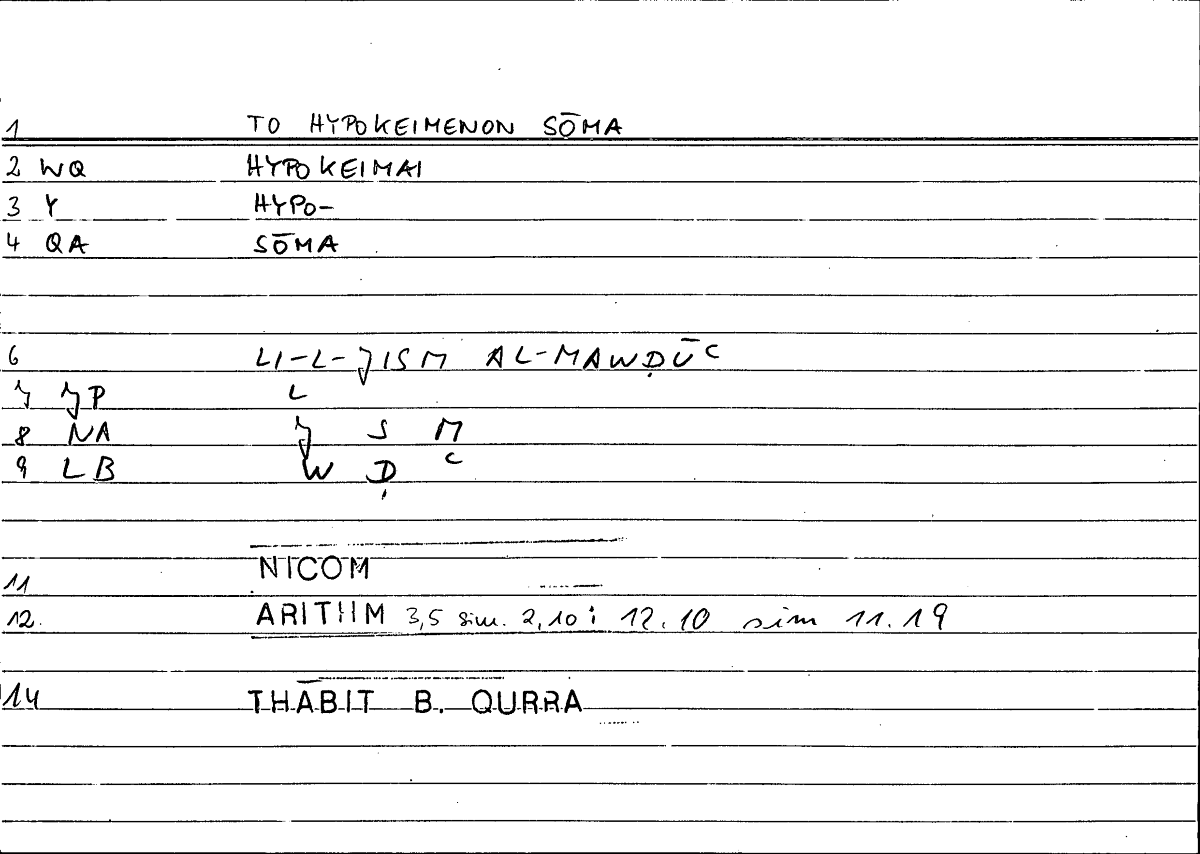 1 TO HYPOKEIMENON SŌMA
2 WQ HYPOKEIMAI
3 Y HYPO-
4 QA SŌMA
6 LI-L-JISM AL-MAWḌŪʿ
7 JP L
8 NA J S M
9 LB W Ḍ ʿ
11 NICOM
12. ARITHM 3,5 sim. 2,10: 12.10 sim 11.19
14 THĀBIT B. QURRA